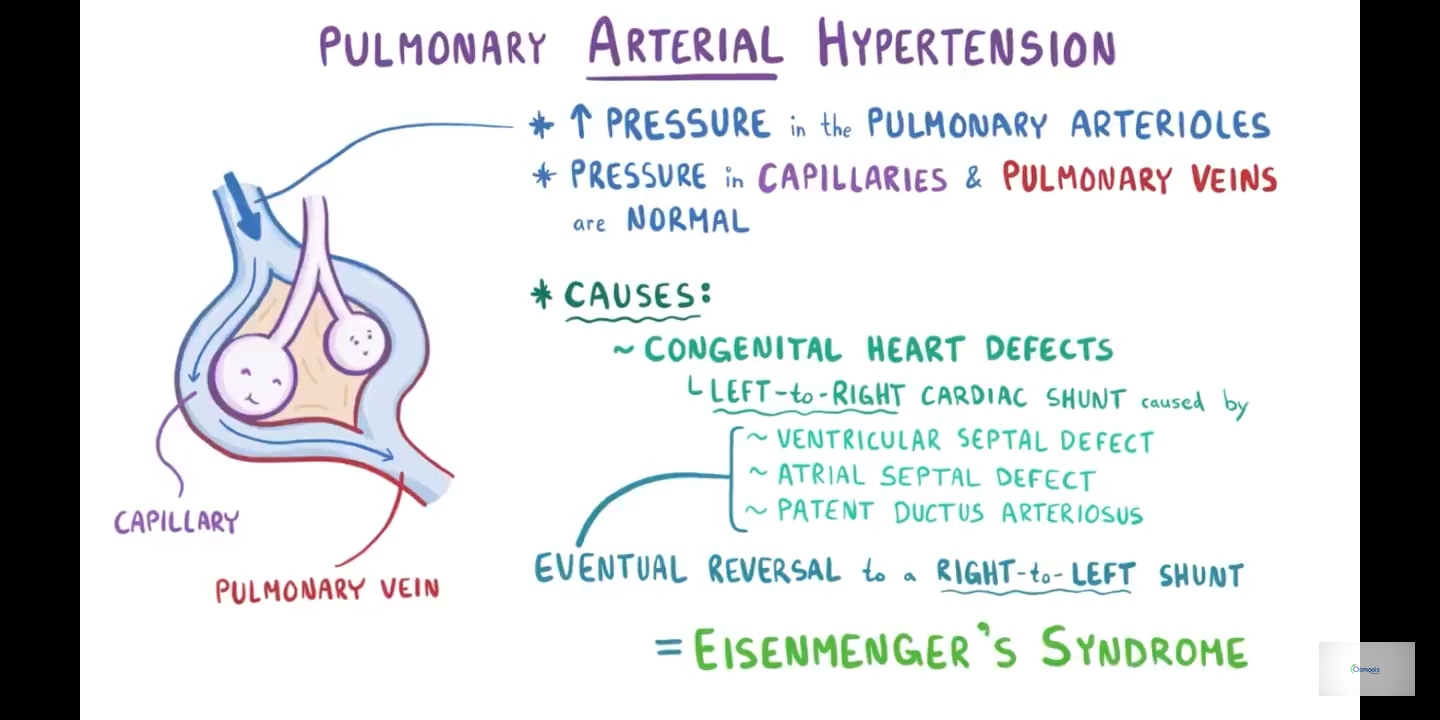 PULMONARY ARTERIAL HYPERTENSION
* ↑ PRESSURE in the PULMONARY ARTERIOLES
* PRESSURE in CAPILLARIES & PULMONARY VEINS
are NORMAL
* CAUSES:
~ CONGENITAL HEART DEFECTS
└ LEFT-to-RIGHT CARDIAC SHUNT caused by
~ VENTRICULAR SEPTAL DEFECT
~ ATRIAL SEPTAL DEFECT
~ PATENT DUCTUS ARTERIOSUS
EVENTUAL REVERSAL to a RIGHT-to-LEFT SHUNT
= EISENMENGER'S SYNDROME
CAPILLARY
PULMONARY VEIN
Osmosis